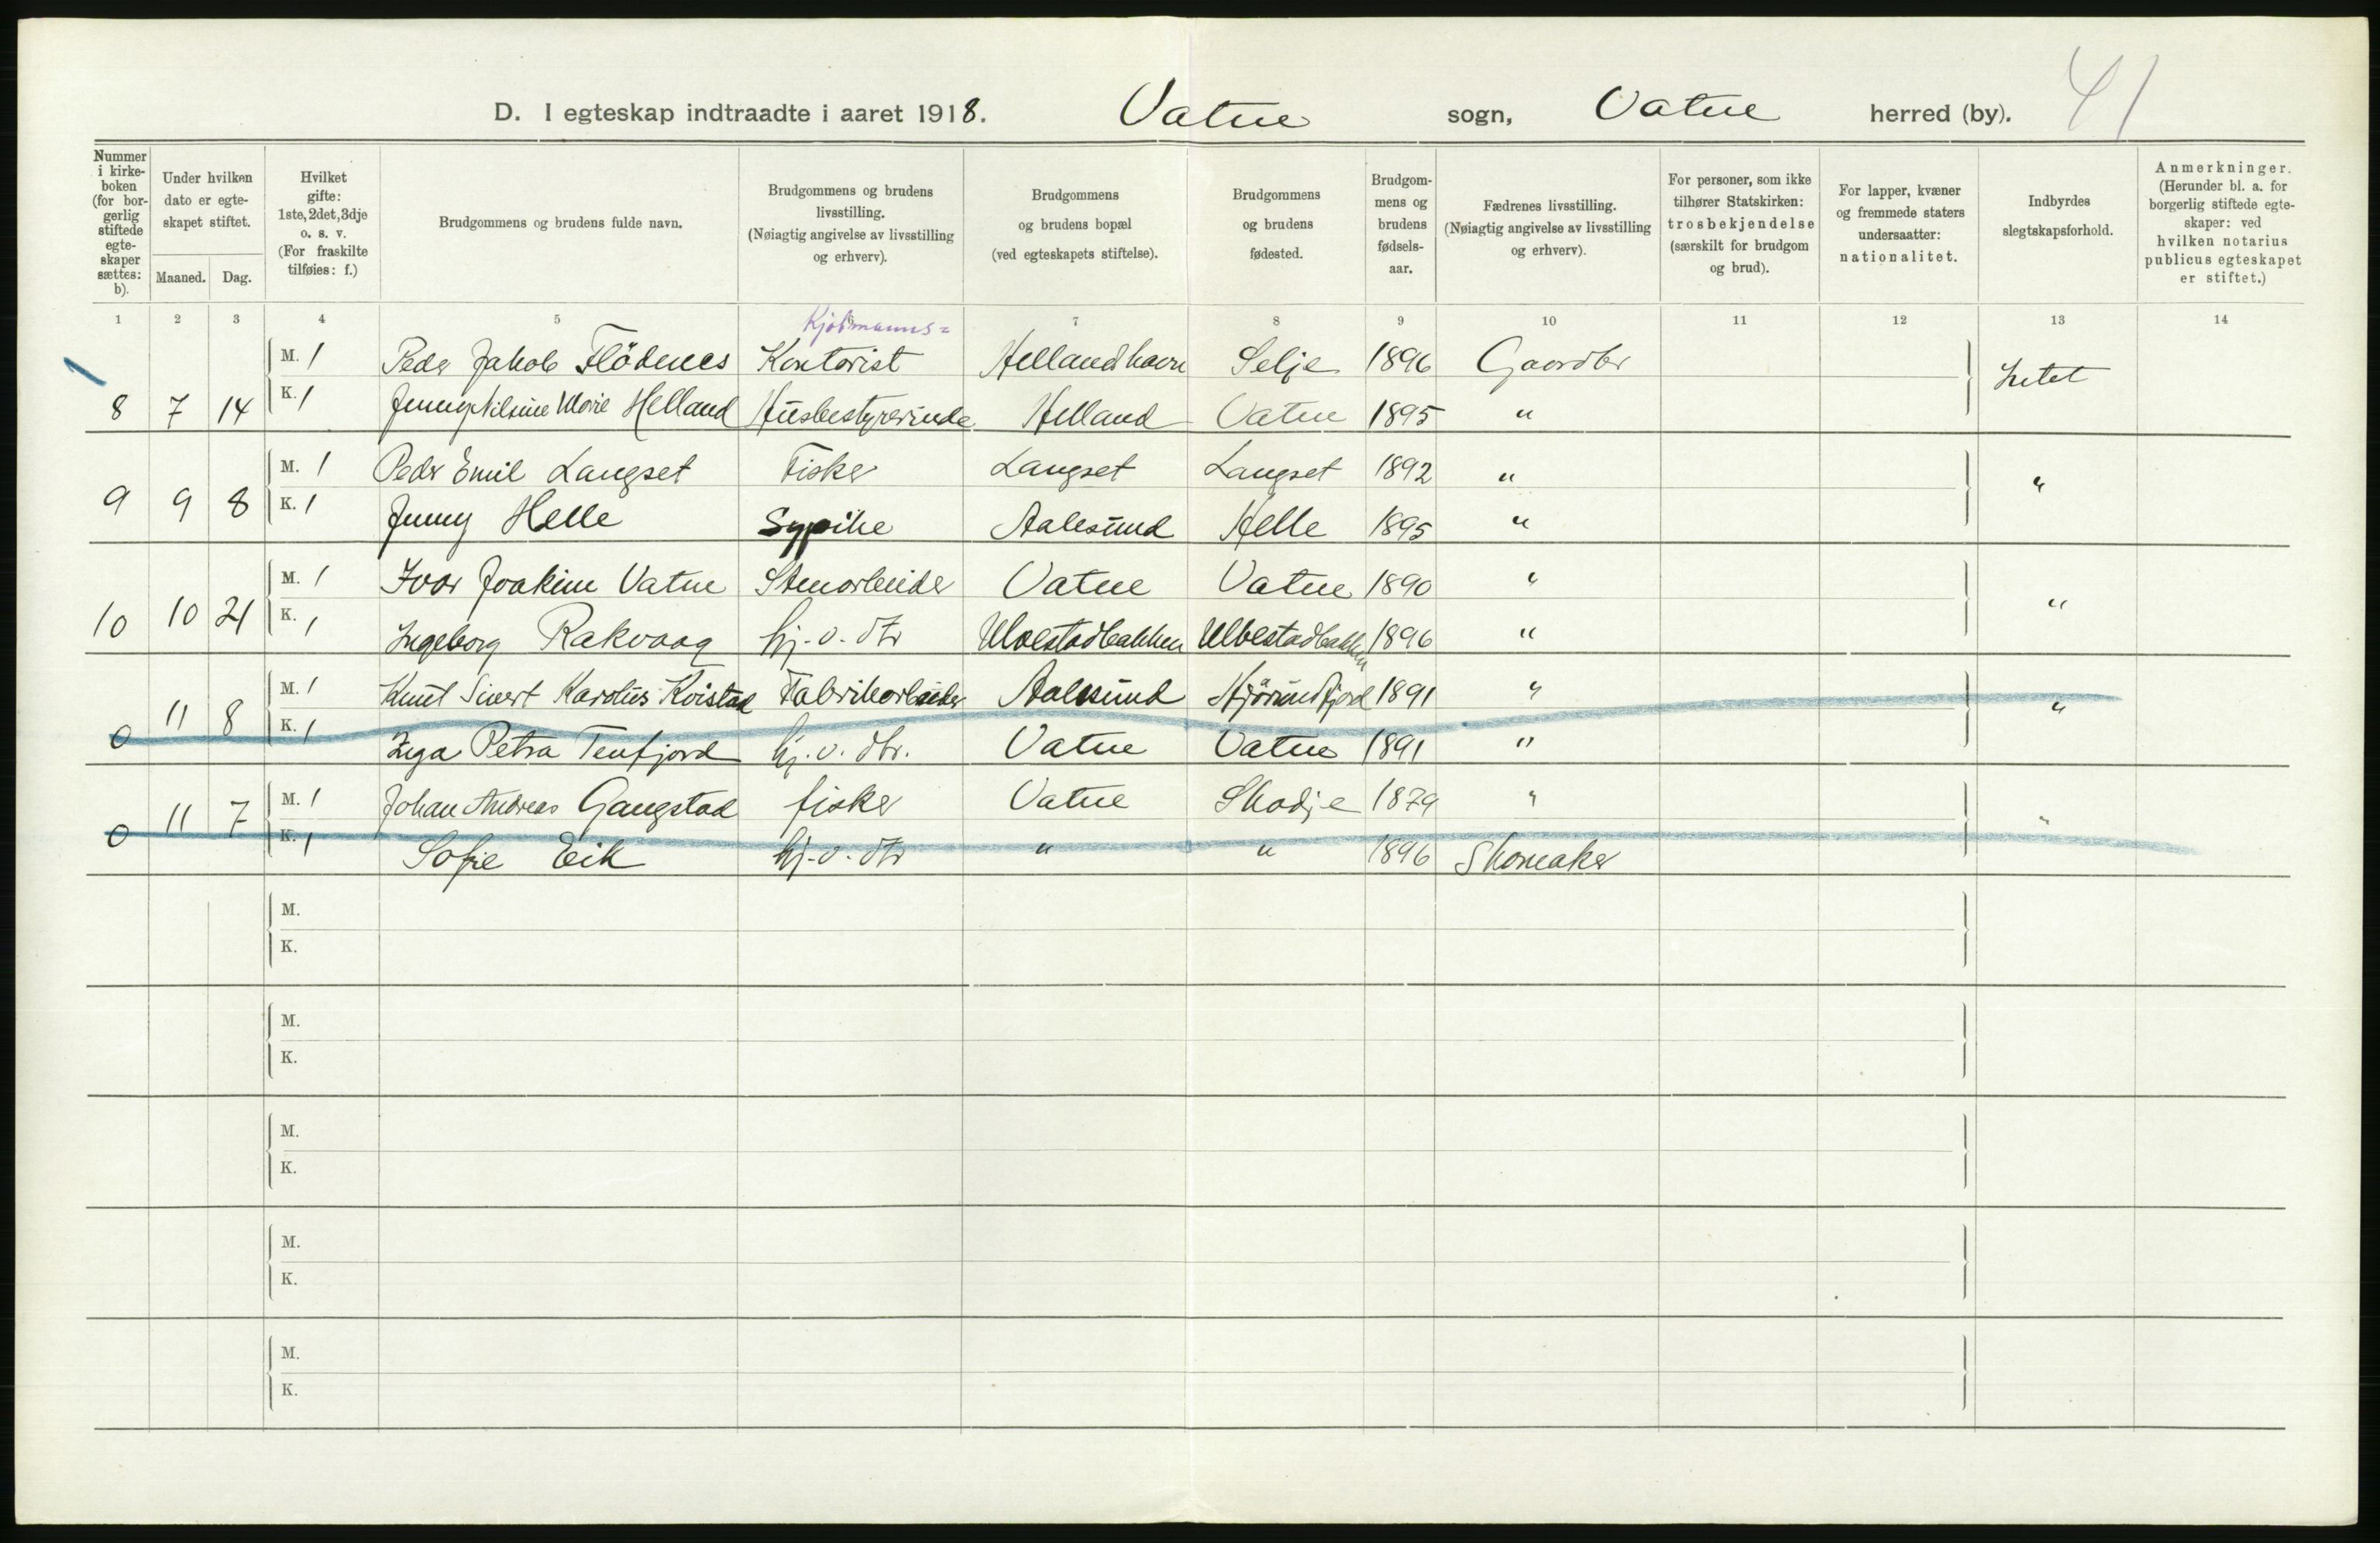 D. I egteskap indtraadte i aaret 1918. Vatne sogn, Vatne herred (by). 41
Nummer i kirkeboken (for borgerlig stiftede egteskaper sættes: b).
Under hvilken dato er egteskapet stiftet.
Maaned. Dag.
Hvilket gifte: 1ste, 2det, 3dje o. s. v. (For fraskilte tilføies: f.)
Brudgommens og brudens fulde navn.
Brudgommens og brudens livsstilling. (Nøiagtig angivelse av livsstilling og erhverv).
Brudgommens og brudens bopæl (ved egteskapets stiftelse).
Brudgommens og brudens fødested.
Brudgommens og brudens fødselsaar.
Fædrenes livsstilling. (Nøiagtig angivelse av livsstilling og erhverv).
For personer, som ikke tilhører Statskirken: trosbekjendelse (særskilt for brudgom og brud).
For lapper, kvæner og fremmede staters undersaatter: nationalitet.
Indbyrdes slegtskapsforhold.
Anmerkninger. (Herunder bl. a. for borgerlig stiftede egteskaper: ved hvilken notarius publicus egteskapet er stiftet.)
1 2 3 4 5 6 7 8 9 10 11 12 13 14
Kjøbmanns=
M. 1 Peder Jakob Flödenes Kontorist Hellandhavn Selje 1896 Gaardbr Intet
8 7 14 K. 1 Jenny Nilsine Marie Helland Husbestyrerinde Helland Vatne 1895 "
M. 1 Peder Emil Langset Fisker Langset Langset 1892 " "
9 9 8 K. 1 Jenny Helle Sypike Aalesund Helle 1895 "
M. 1 Ivar Joakim Vatne Stenarbeider Vatne Vatne 1890 " "
10 10 21 K. 1 Ingeborg Rakvaag hj. v. dtr Ulvestadbakken Ulvestadbakken 1896 "
M. 1 Knut Sivert Karolus Kvistad Fabrikarbeider Aalesund Hjörundfjord 1891 " "
0 11 8 K. 1 Inga Petra Tenfjord hj. v. dtr. Vatne Vatne 1891 "
M. 1 Johan Andreas Gangstad fisker Vatne Skodje 1879 " "
0 11 7 K. 1 Sofie Eik hj. v. dtr " " 1896 Skomaker
M.
K.
M.
K.
M.
K.
M.
K.
M.
K.